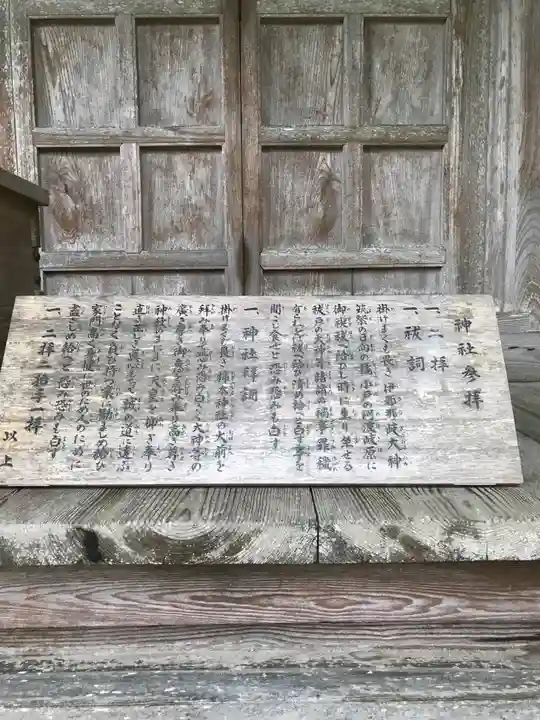 神社参拝
一、二拝
一、祓詞
掛けまくも畏き伊邪那岐大神
筑紫の日向の橘小戸の阿波岐原に
御禊祓へ給ひし時に生り坐せる
祓戸の大神等諸諸の禍事罪穢
有らむをば祓へ給ひ清め給へと白す事を
聞こし食せと恐み恐みも白す
一、神社拝詞
掛けまくも畏き 神社の大前を
拝み奉りて恐み恐みも白さく大神等の
広き厚き御恵を辱み奉り高き尊き
神教のまにまに天皇を仰ぎ奉り
直き正しき真心もちて誠の道に違ふ
ことなく負ひ持つ業に励ましめ給ひ
家門高く身健に世のため人のために
尽さしめ給へと恐み恐みも白す
一、二拝二拍手一拝
以上